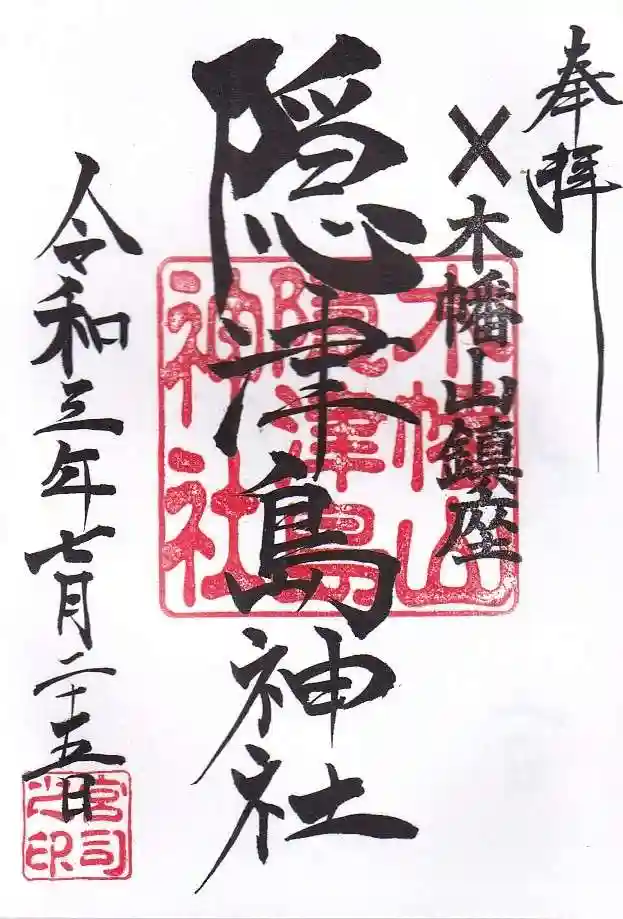 奉拝
木幡山鎮座
隠津島神社
木幡山
隠津島
神社
令和三年七月二十五日
宮司
之印